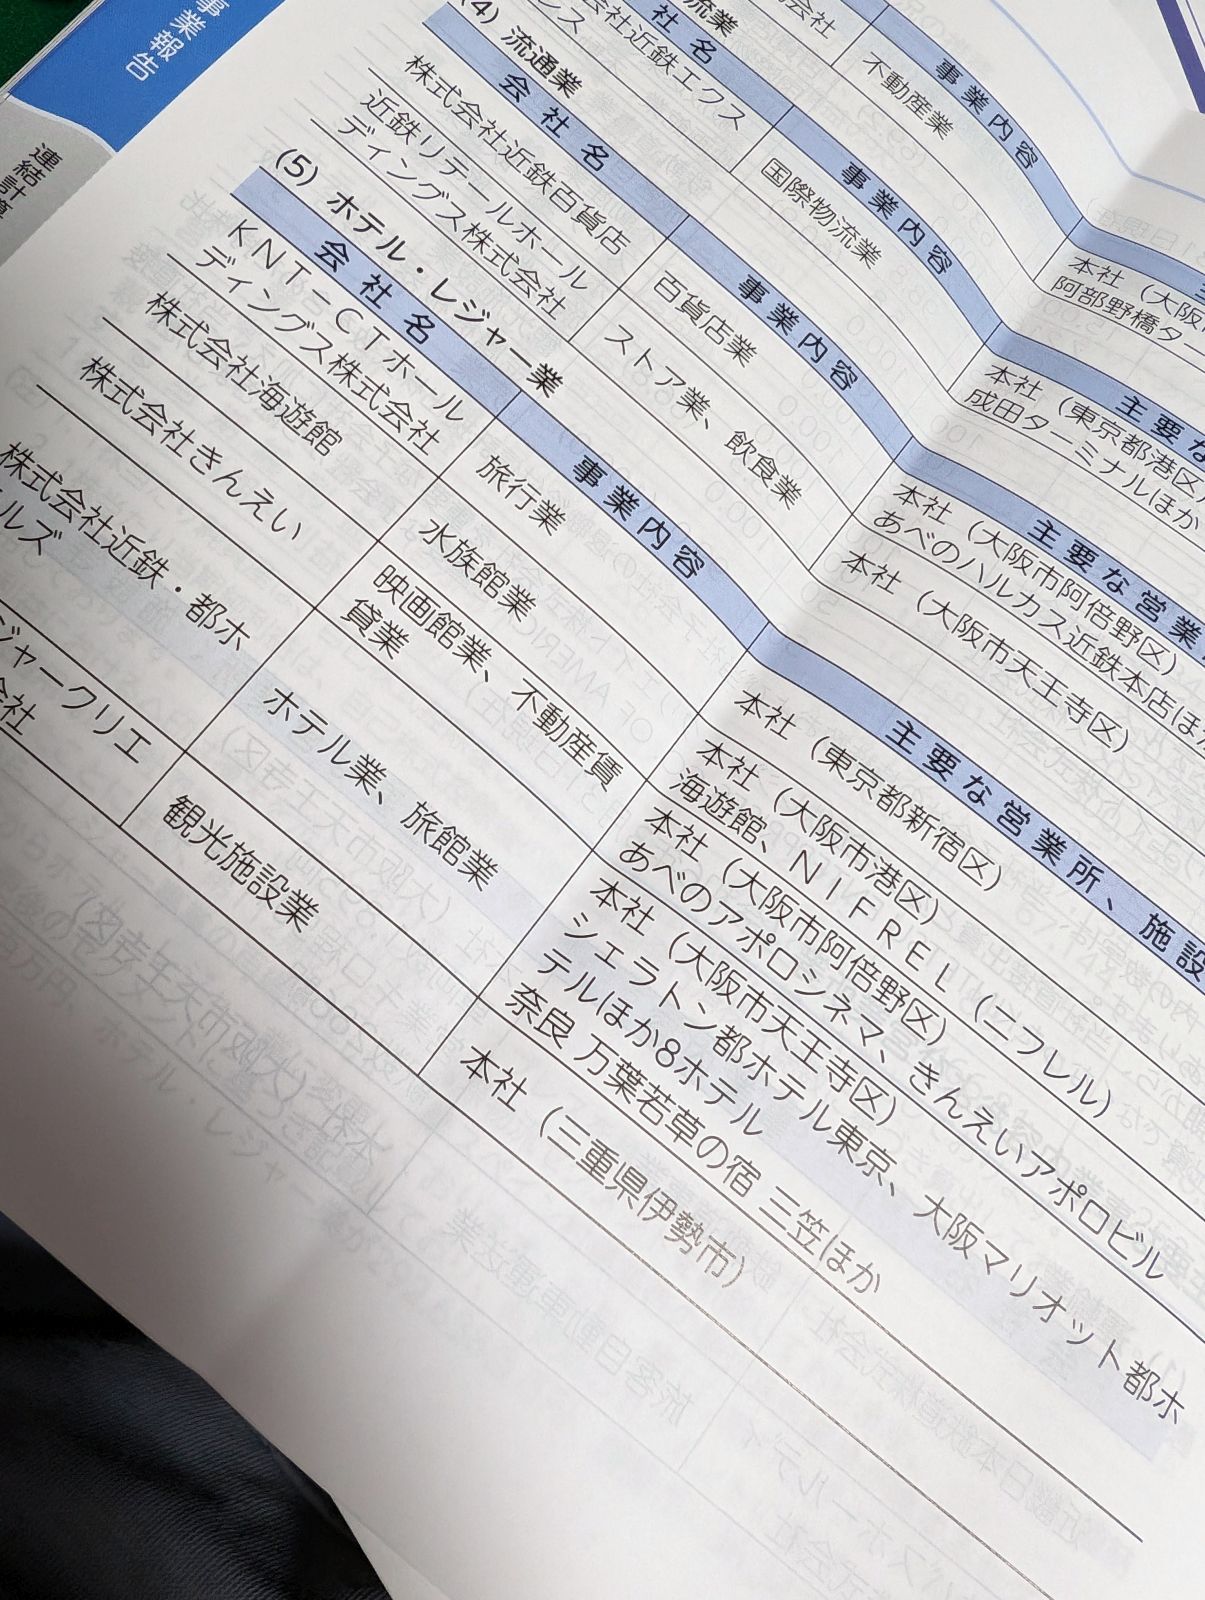 事業報告
連結計算
事業内容
不動産業
本社（大阪
阿部野橋ター
流業
社名
事業内容
会社近鉄エクス
レス
国際物流業
本社（東京都港区）
成田ターミナルほか
(4) 流通業
会社名
事業内容
主要な営業
株式会社近鉄百貨店
百貨店業
本社（大阪市阿倍野区）
あべのハルカス近鉄本店ほか
近鉄リテールホール
ディングス株式会社
ストア業、飲食業
本社（大阪市天王寺区）
(5) ホテル・レジャー業
会社名
事業内容
主要な営業所、施設
ＫＮＴ－ＣＴホール
ディングス株式会社
旅行業
本社（東京都新宿区）
株式会社海遊館
水族館業
本社（大阪市港区）
海遊館、ＮＩＦＲＥＬ（ニフレル）
株式会社きんえい
映画館業、不動産賃
貸業
本社（大阪市阿倍野区）
あべのアポロシネマ、きんえいアポロビル
株式会社近鉄・都ホ
ルズ
ホテル業、旅館業
本社（大阪市天王寺区）
シェラトン都ホテル東京、大阪マリオット都ホ
テルほか8ホテル
奈良 万葉若草の宿 三笠ほか
ジャークリエ
会社
観光施設業
本社（三重県伊勢市）